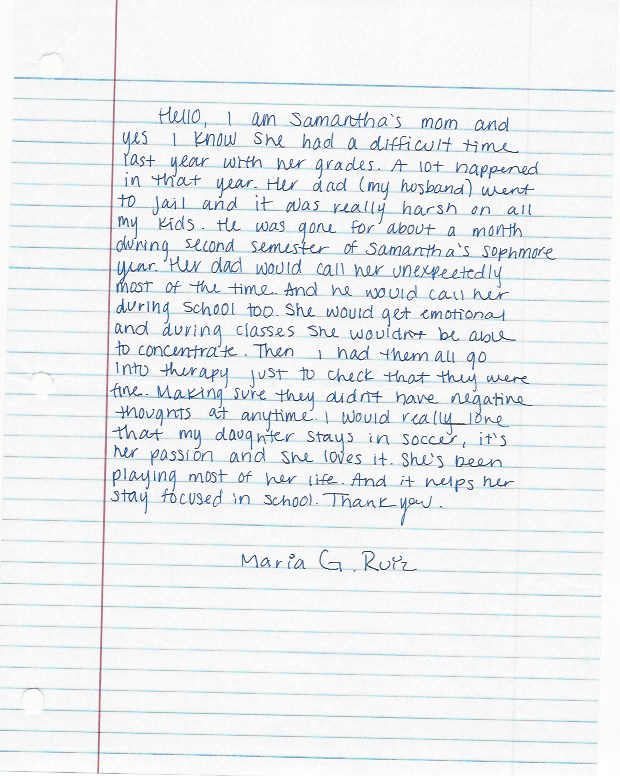 Hello, I am Samantha's mom and
yes I know She had a difficult time
last year with her grades. A lot happened
in that year. Her dad (my husband) went
to jail and it was really harsh on all
my kids. He was gone for about a month
during second semester of Samantha's sophmore
year. Her dad would call her unexpectedly
most of the time. And he would call her
during school too. She would get emotional
and during classes she wouldn't be able
to concentrate. Then I had them all go
into therapy just to check that they were
fine. Making sure they didn't have negative
thoughts at anytime. I would really love
that my daughter stays in soccer, it's
her passion and she loves it. She's been
playing most of her life. And it helps her
stay focused in school. Thank you.
Maria G. Ruiz